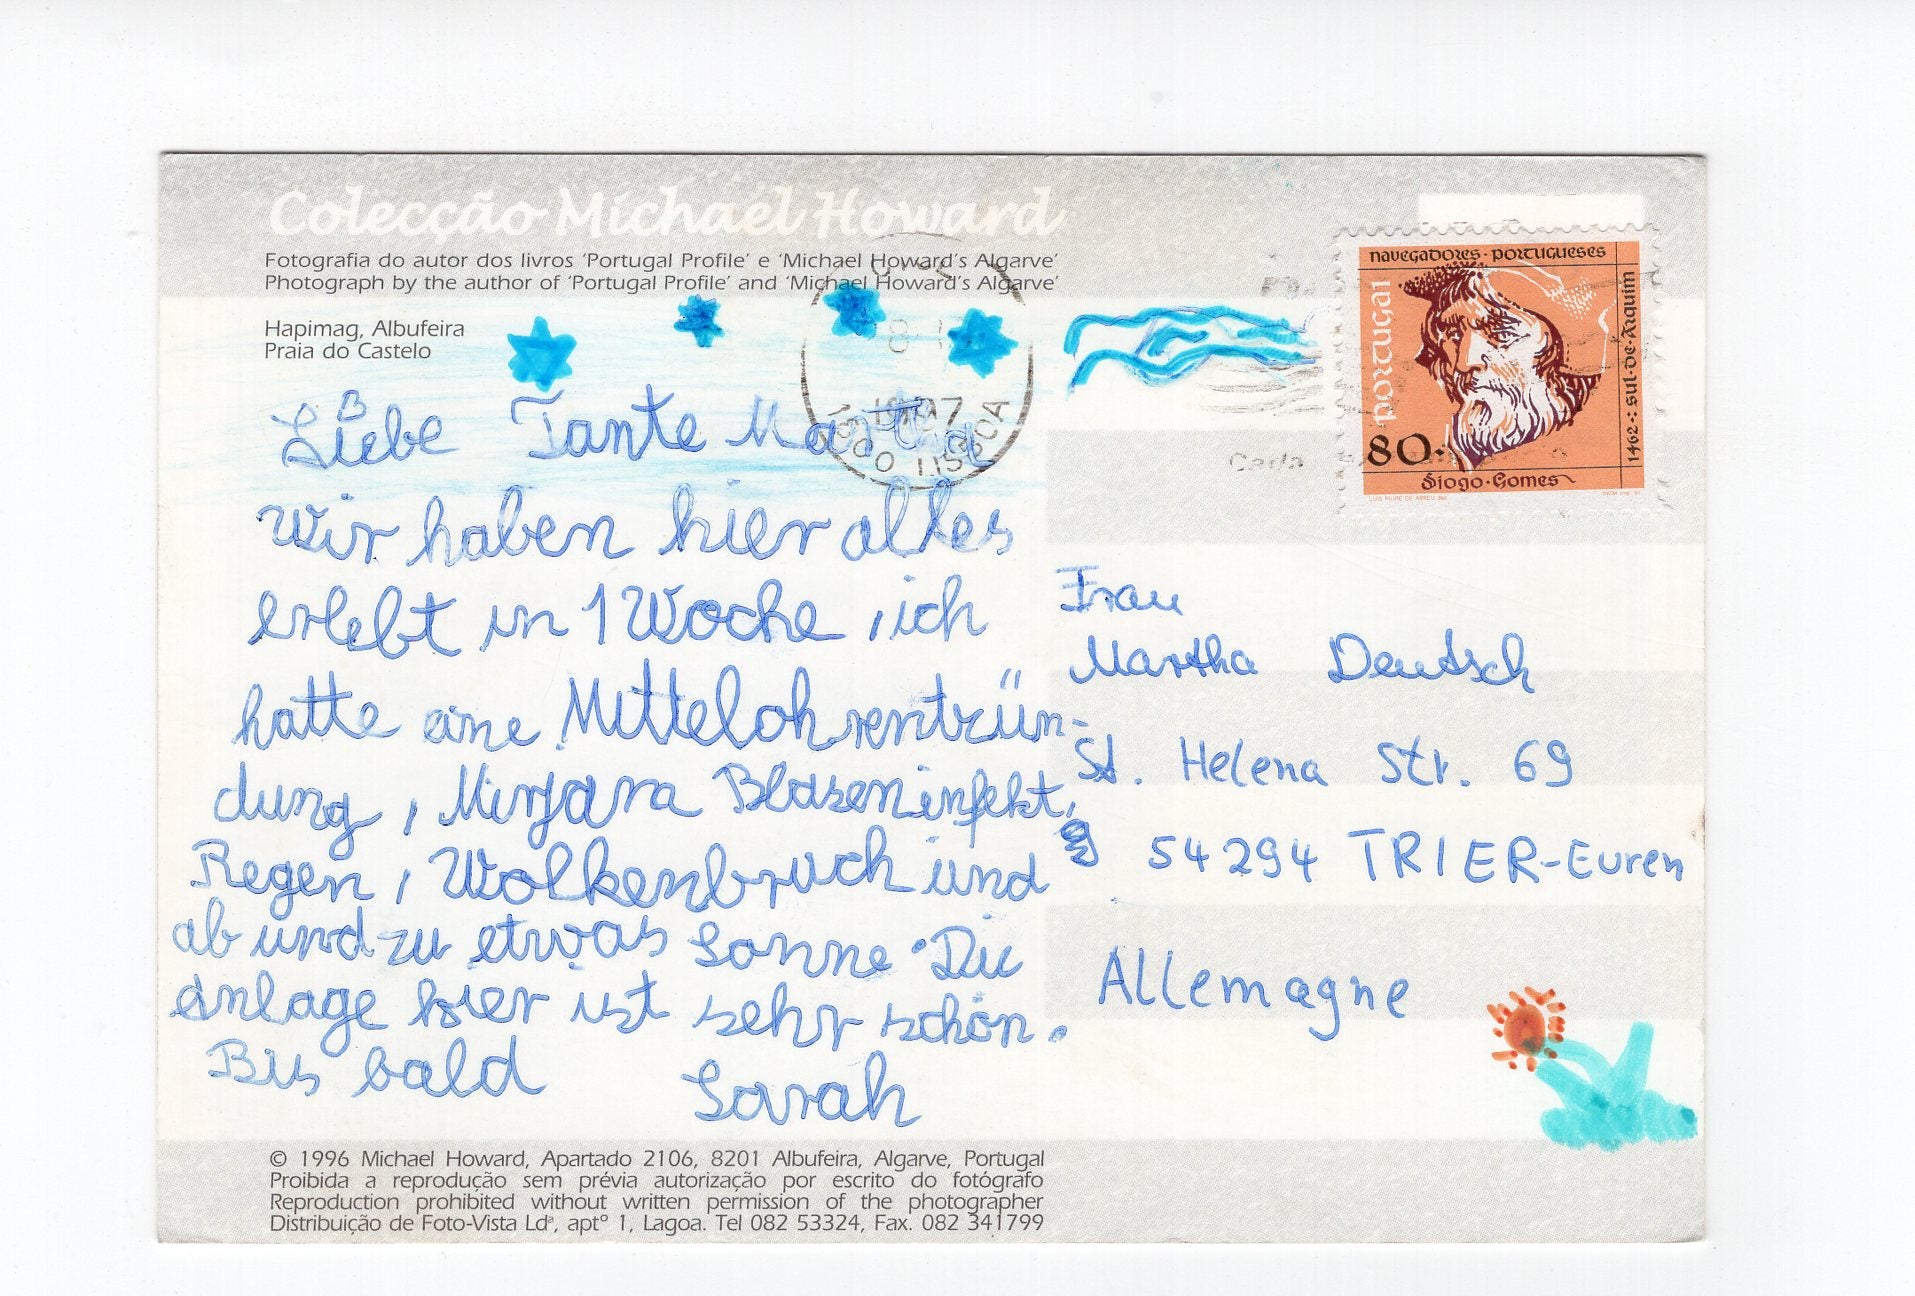 Colecção Michael Howard
Fotografia do autor dos livros 'Portugal Profile' e 'Michael Howard's Algarve'
Photograph by the author of 'Portugal Profile' and 'Michael Howard's Algarve'
Hapimag, Albufeira
Praia do Castelo
Liebe Tante Martha
wir haben hier alles
erlebt in 1 Woche, ich
hatte eine Mittelohrentzün-
dung, Mirjana Blaseninfekt,
Regen, Wolkenbruch und
ab und zu etwas Sonne. Die
Anlage hier ist sehr schön.
Bis bald
Sarah
© 1996 Michael Howard, Apartado 2106, 8201 Albufeira, Algarve, Portugal
Proibida a reprodução sem prévia autorização por escrito do fotógrafo
Reproduction prohibited without written permission of the photographer
Distribuição de Foto-Vista Ldª, aptº 1, Lagoa. Tel 082 53324, Fax. 082 341799
1997
LISBOA
navegadores · portugueses
portugal
1462 · sul · de · Arquim
80.
Diogo · Gomes
LUIS FILIPE DE ABREU
Frau
Martha Deutsch
St. Helena Str. 69
54294 TRIER-Euren
Allemagne